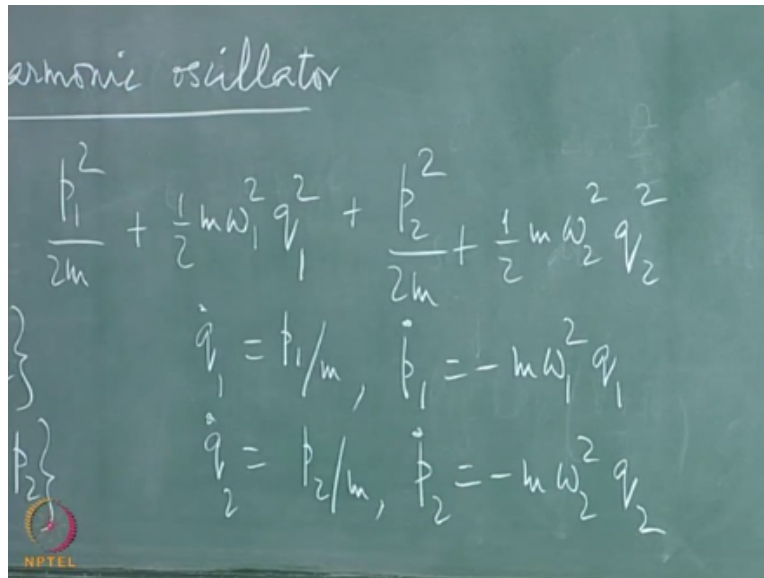 armonic oscillator
p₁²/2m + ½ mω₁² q₁² + p₂²/2m + ½ mω₂² q₂²
} q̇₁ = p₁/m, ṗ₁ = - mω₁² q₁
p₂} q̇₂ = p₂/m, ṗ₂ = - mω₂² q₂
NPTEL